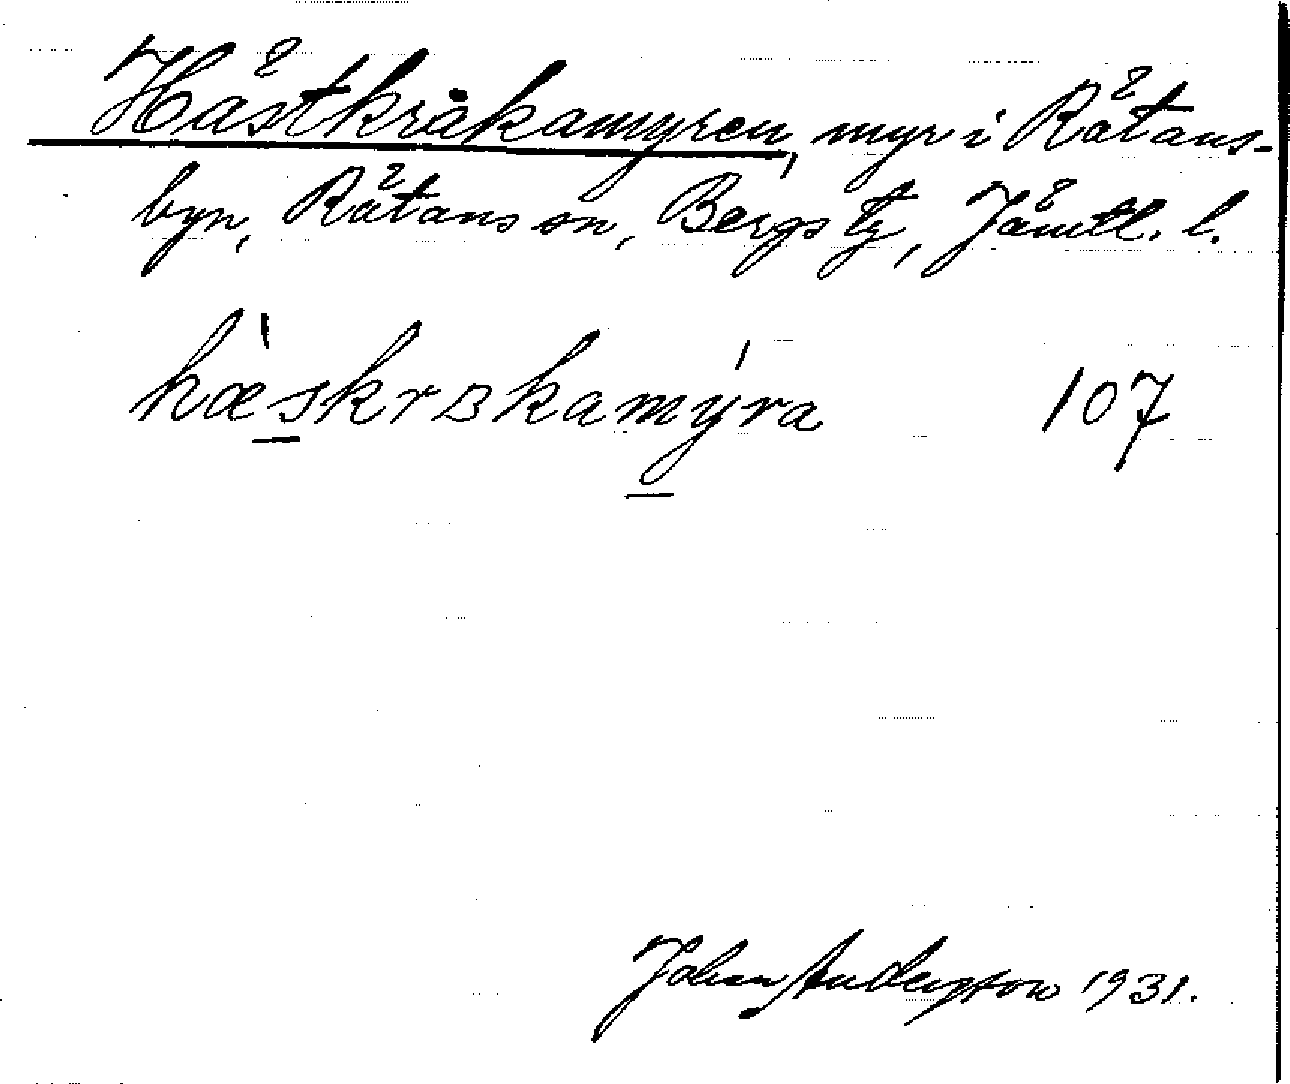 Hästkråkamyren, myr i Rätans-
byn, Rätans sn, Bergs tg, Jämtl. l.
hæskrɞkamyra 107
Johan Anderson 1931.